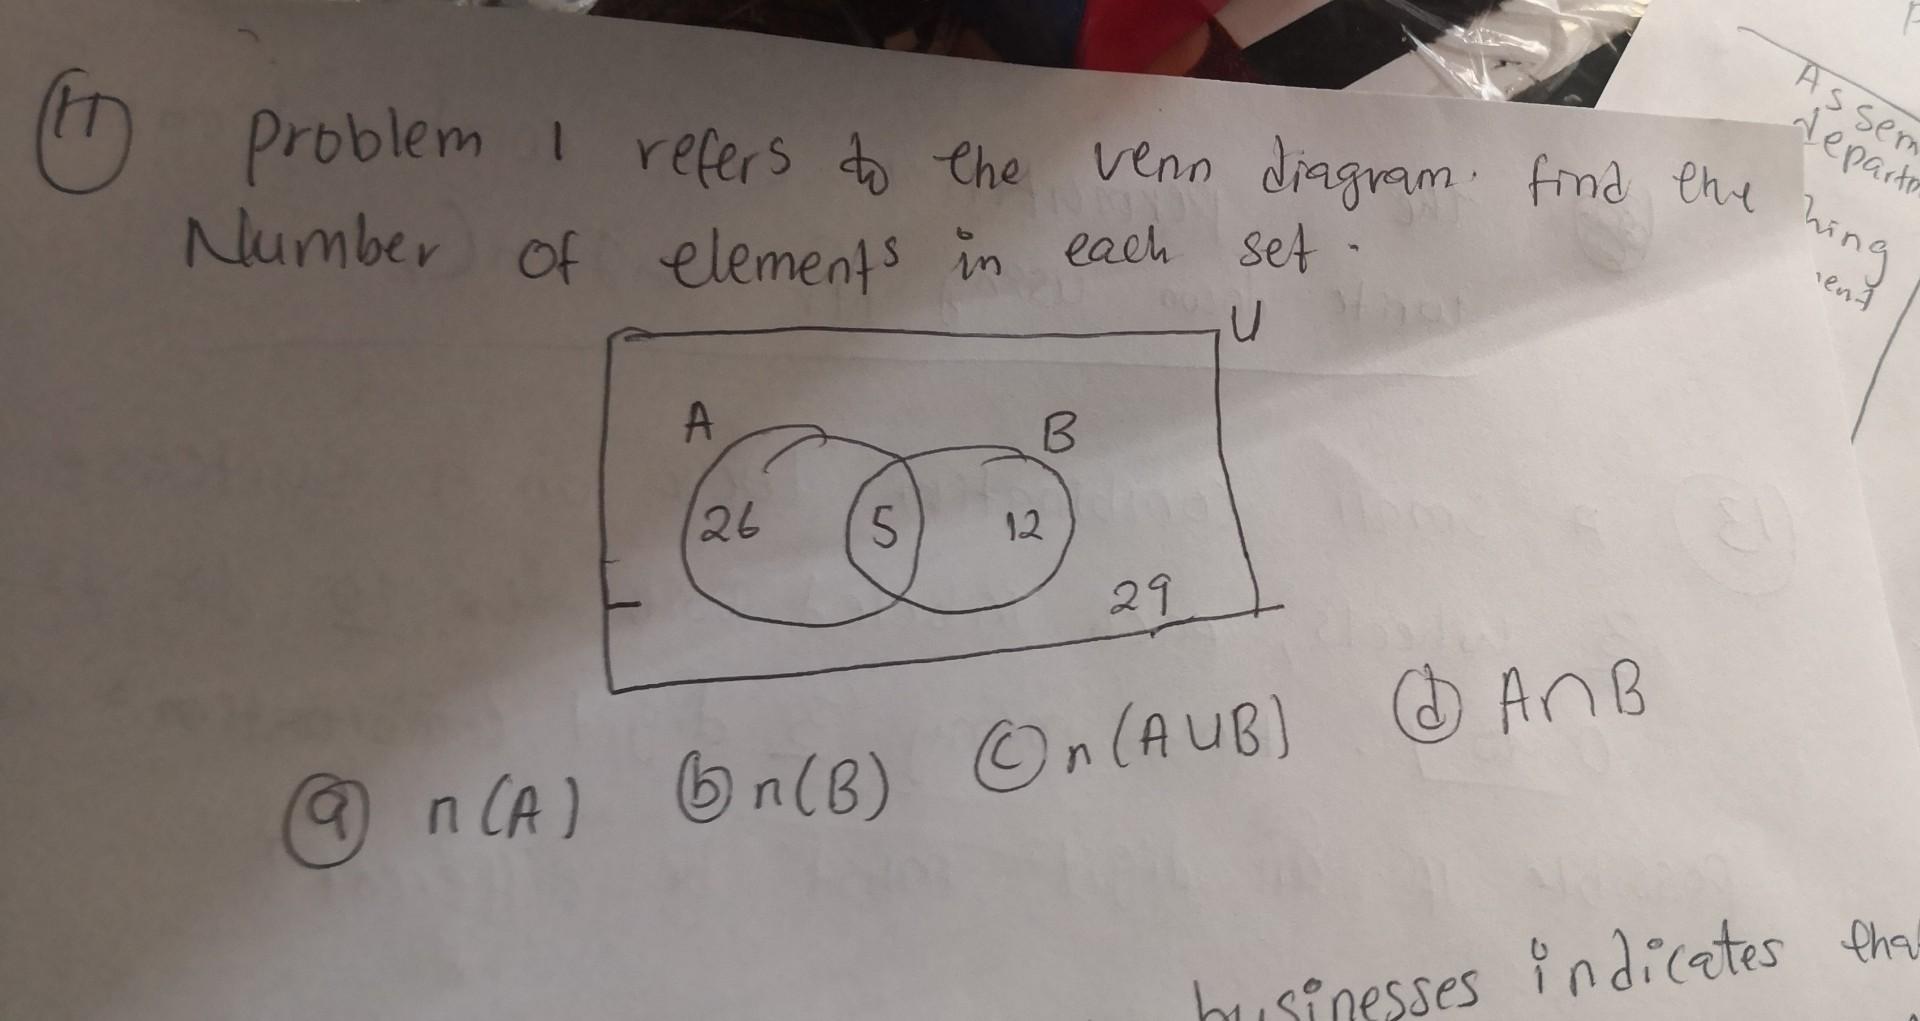 11 problem 1 refers to the venn diagram. find the
Number of elements in each set.
U
A B
26 5 12
29
a n(A) b n(B) c n(A∪B) d A∩B
businesses indicates
Assem
departm
hing
ent